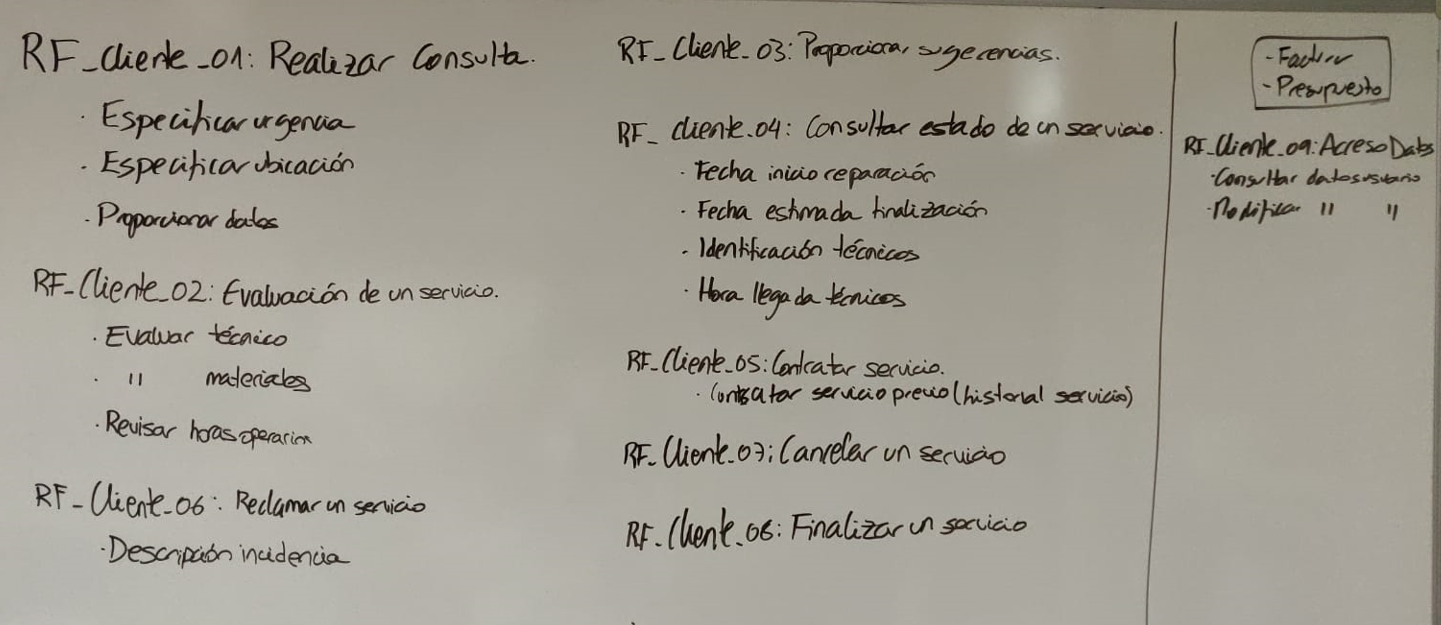 RF_Cliente_01: Realizar Consulta.
· Especificar urgencia
· Especificar ubicación
· Proporcionar datos
RF_Cliente_02: Evaluación de un servicio.
· Evaluar técnico
· " materiales
· Revisar horas operación
RF_Cliente_06: Reclamar un servicio
· Descripción incidencia
RF_Cliente_03: Proporcionar sugerencias.
RF_Cliente_04: Consultar estado de un servicio.
· Fecha inicio reparación
· Fecha estimada finalización
· Identificación técnicos
· Hora llegada técnicos
RF_Cliente_05: Contratar servicio.
· Contratar servicio previo (historial servicio)
RF_Cliente_07: Cancelar un servicio
RF_Cliente_08: Finalizar un servicio
- Factura
- Presupuesto
RF_Cliente_09: Acceso Datos
· Consultar datos usuario
· Modificar " "